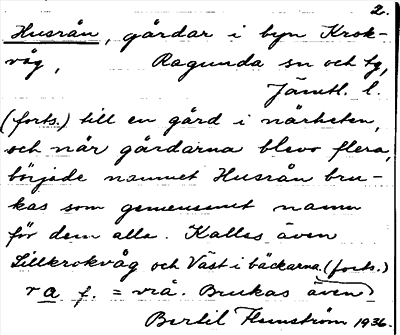 2.
Husrån, gårdar i byn Krok-
våg, Ragunda sn och tg,
Jämtl. l.
(forts.) till en gård i närheten,
och når gårdarna blevo flera,
började namnet Husrån bru-
kas som gemensamt namn
för dem alla. Kallas även
Lillkrokvåg och Väst i bäckarna. (forts.)
ra f. = vrå. Brukas även)
Bertil Flemström 1936.